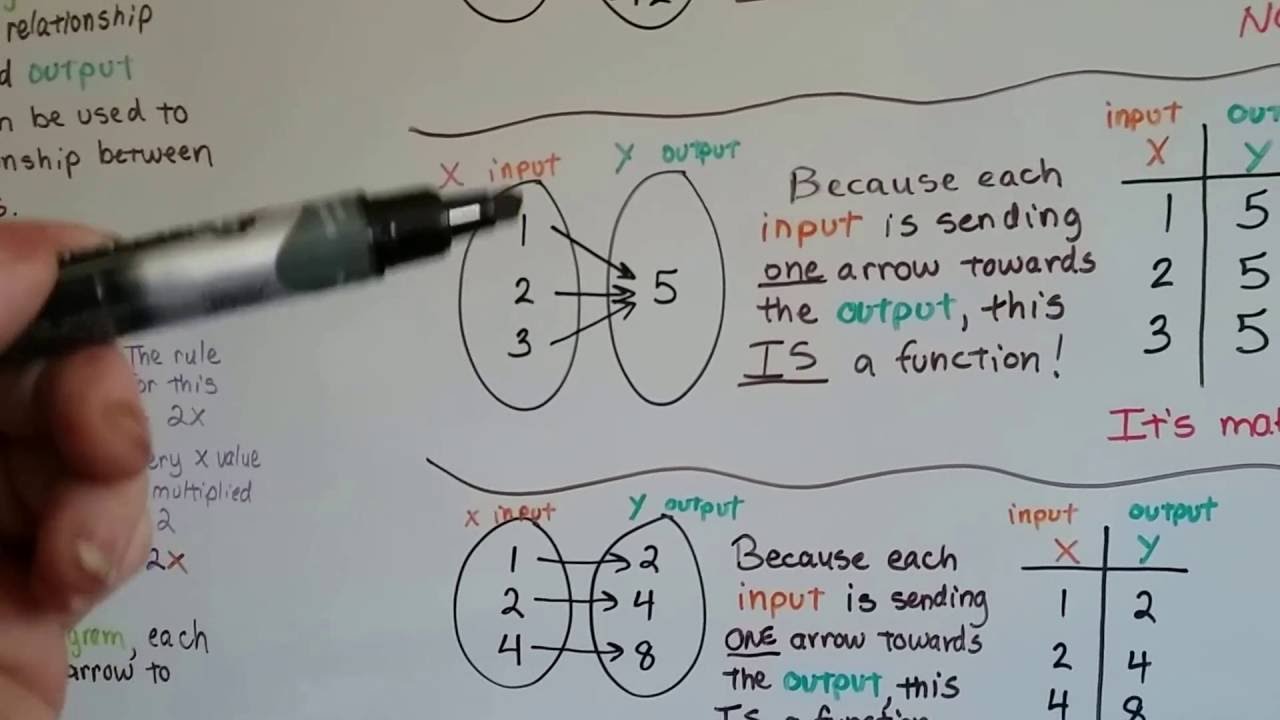 relationship
output
be used to
between
The rule
for this
2x
x value
multiplied
2
2x
each
arrow to
12
x input y output
1
2 5
3
Because each
input is sending
one arrow towards
the output, this
IS a function!
input
x y
1 5
2 5
3 5
It's
x input y output
1 2
2 4
4 8
Because each
input is sending
ONE arrow towards
the output, this
IS a function
input output
x y
1 2
2 4
4 8